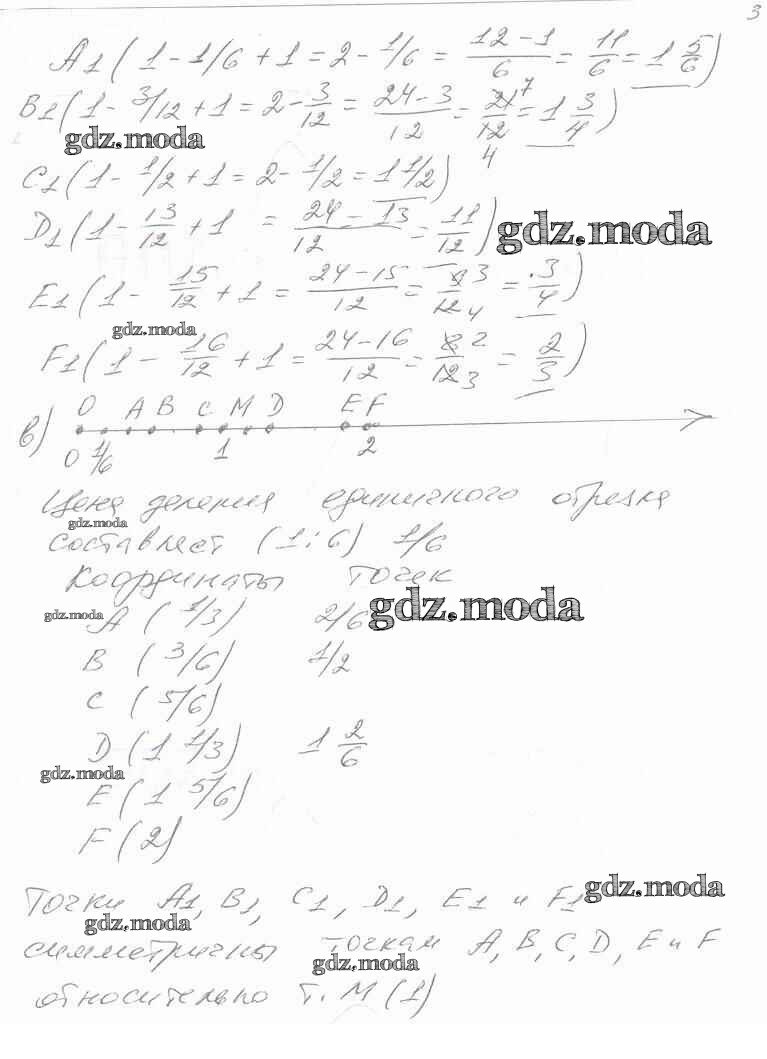 3
A1 ( 1 - 1/6 + 1 = 2 - 1/6 = 12-1/6 = 11/6 = 1 5/6 )
B1 ( 1 - 3/12 + 1 = 2 - 3/12 = 24-3/12 = 21 7/12 4 = 1 3/4 )
gdz.moda
C1 ( 1 - 1/2 + 1 = 2 - 1/2 = 1 1/2 )
D1 ( 1 - 13/12 + 1 = 24-13/12 = 11/12 )
gdz.moda
E1 ( 1 - 15/12 + 1 = 24-15/12 = 9 3/12 4 = 3/4 )
gdz.moda
F1 ( 1 - 16/12 + 1 = 24-16/12 = 8 2/12 3 = 2/3 )
в) O A B C M D E F
0 1/6 1 2
Цена деления единичного отрезка
gdz.moda
составляет (1:6) 1/6
Координаты точек
gdz.moda
gdz.moda
A ( 1/3 ) 2/6
B ( 3/6 ) 1/2
C ( 5/6 )
D ( 1 1/3 ) 1 2/6
gdz.moda
E ( 1 5/6 )
F ( 2 )
Точки A1, B1, C1, D1, E1 и F1
gdz.moda
gdz.moda
симметричны точкам A, B, C, D, E и F
gdz.moda
относительно т. M (1)